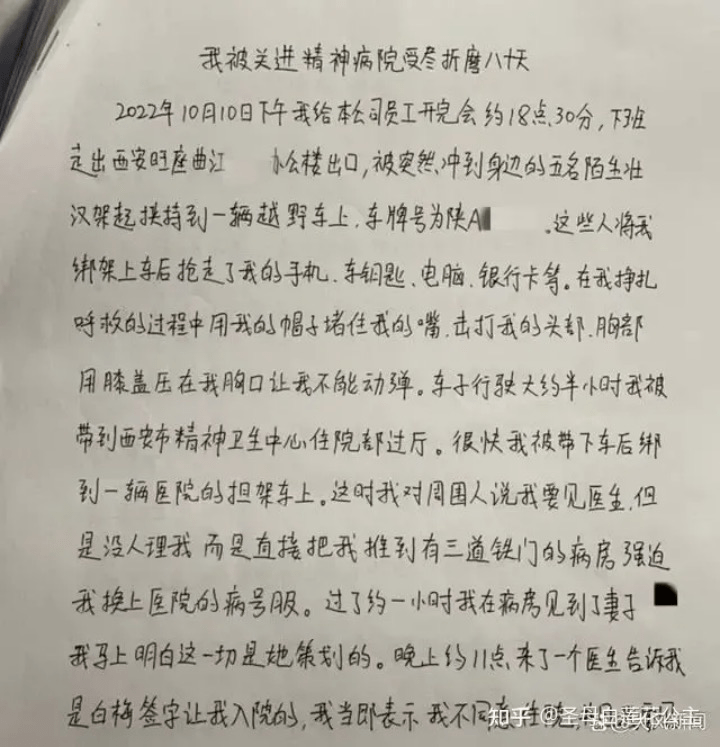 我被关进精神病院受尽折磨八十天
2022年10月10日下午我给本公司员工开完会约18点30分，下班
走出西安旺座曲江 办公楼出口，被突然冲到身边的五名陌生壮
汉架起挟持到一辆越野车上，车牌号为陕A 。这些人将我
绑架上车后抢走了我的手机、车钥匙、电脑、银行卡等。在我挣扎
呼救的过程中用我的帽子堵住我的嘴，击打我的头部、胸部
用膝盖压在我胸口让我不能动弹。车子行驶大约半小时我被
带到西安市精神卫生中心住院部过厅。很快我被带下车后绑
到一辆医院的担架车上。这时我对周围人说我要见医生，但
是没人理我 而是直接把我推到有三道铁门的病房 强迫
我换上医院的病号服。过了约一小时我在病房见到了妻子
我马上明白这一切是她策划的。晚上约11点来了一个医生告诉我
是白梅签字让我入院的，我当即表示我不同意住院
知乎 @圣母白莲花公主
新闻